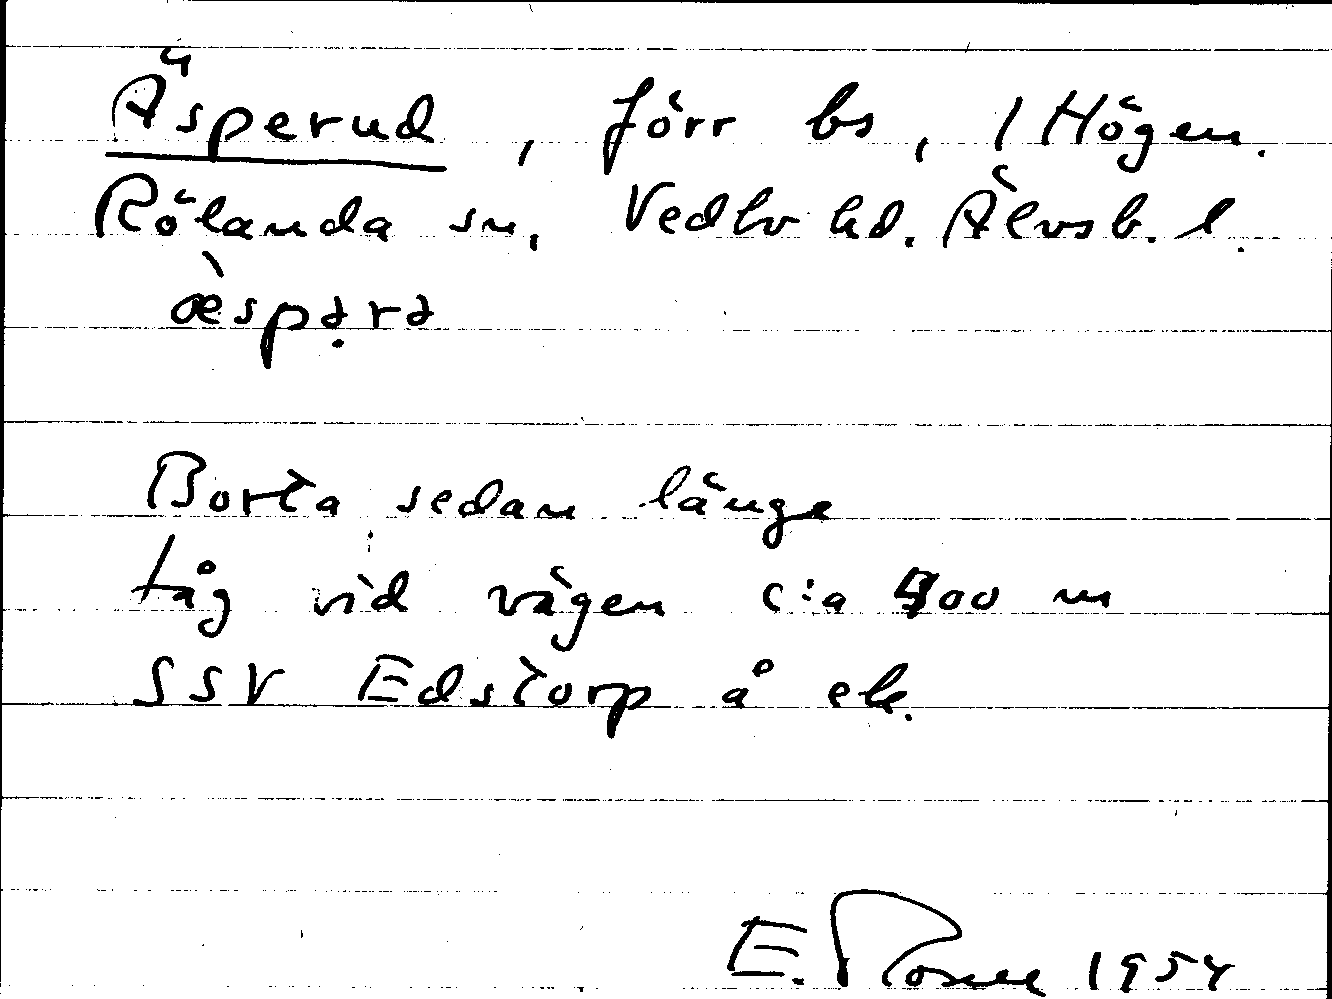 Äsperud, förr bs, 1 Högen.
Rölanda sn, Vedbo hd. Älvsb. l.
æ̀spə̣rə
Borta sedan länge
Låg vid vägen c:a 400 m
SSV Edstorp å ek.
E. 1954